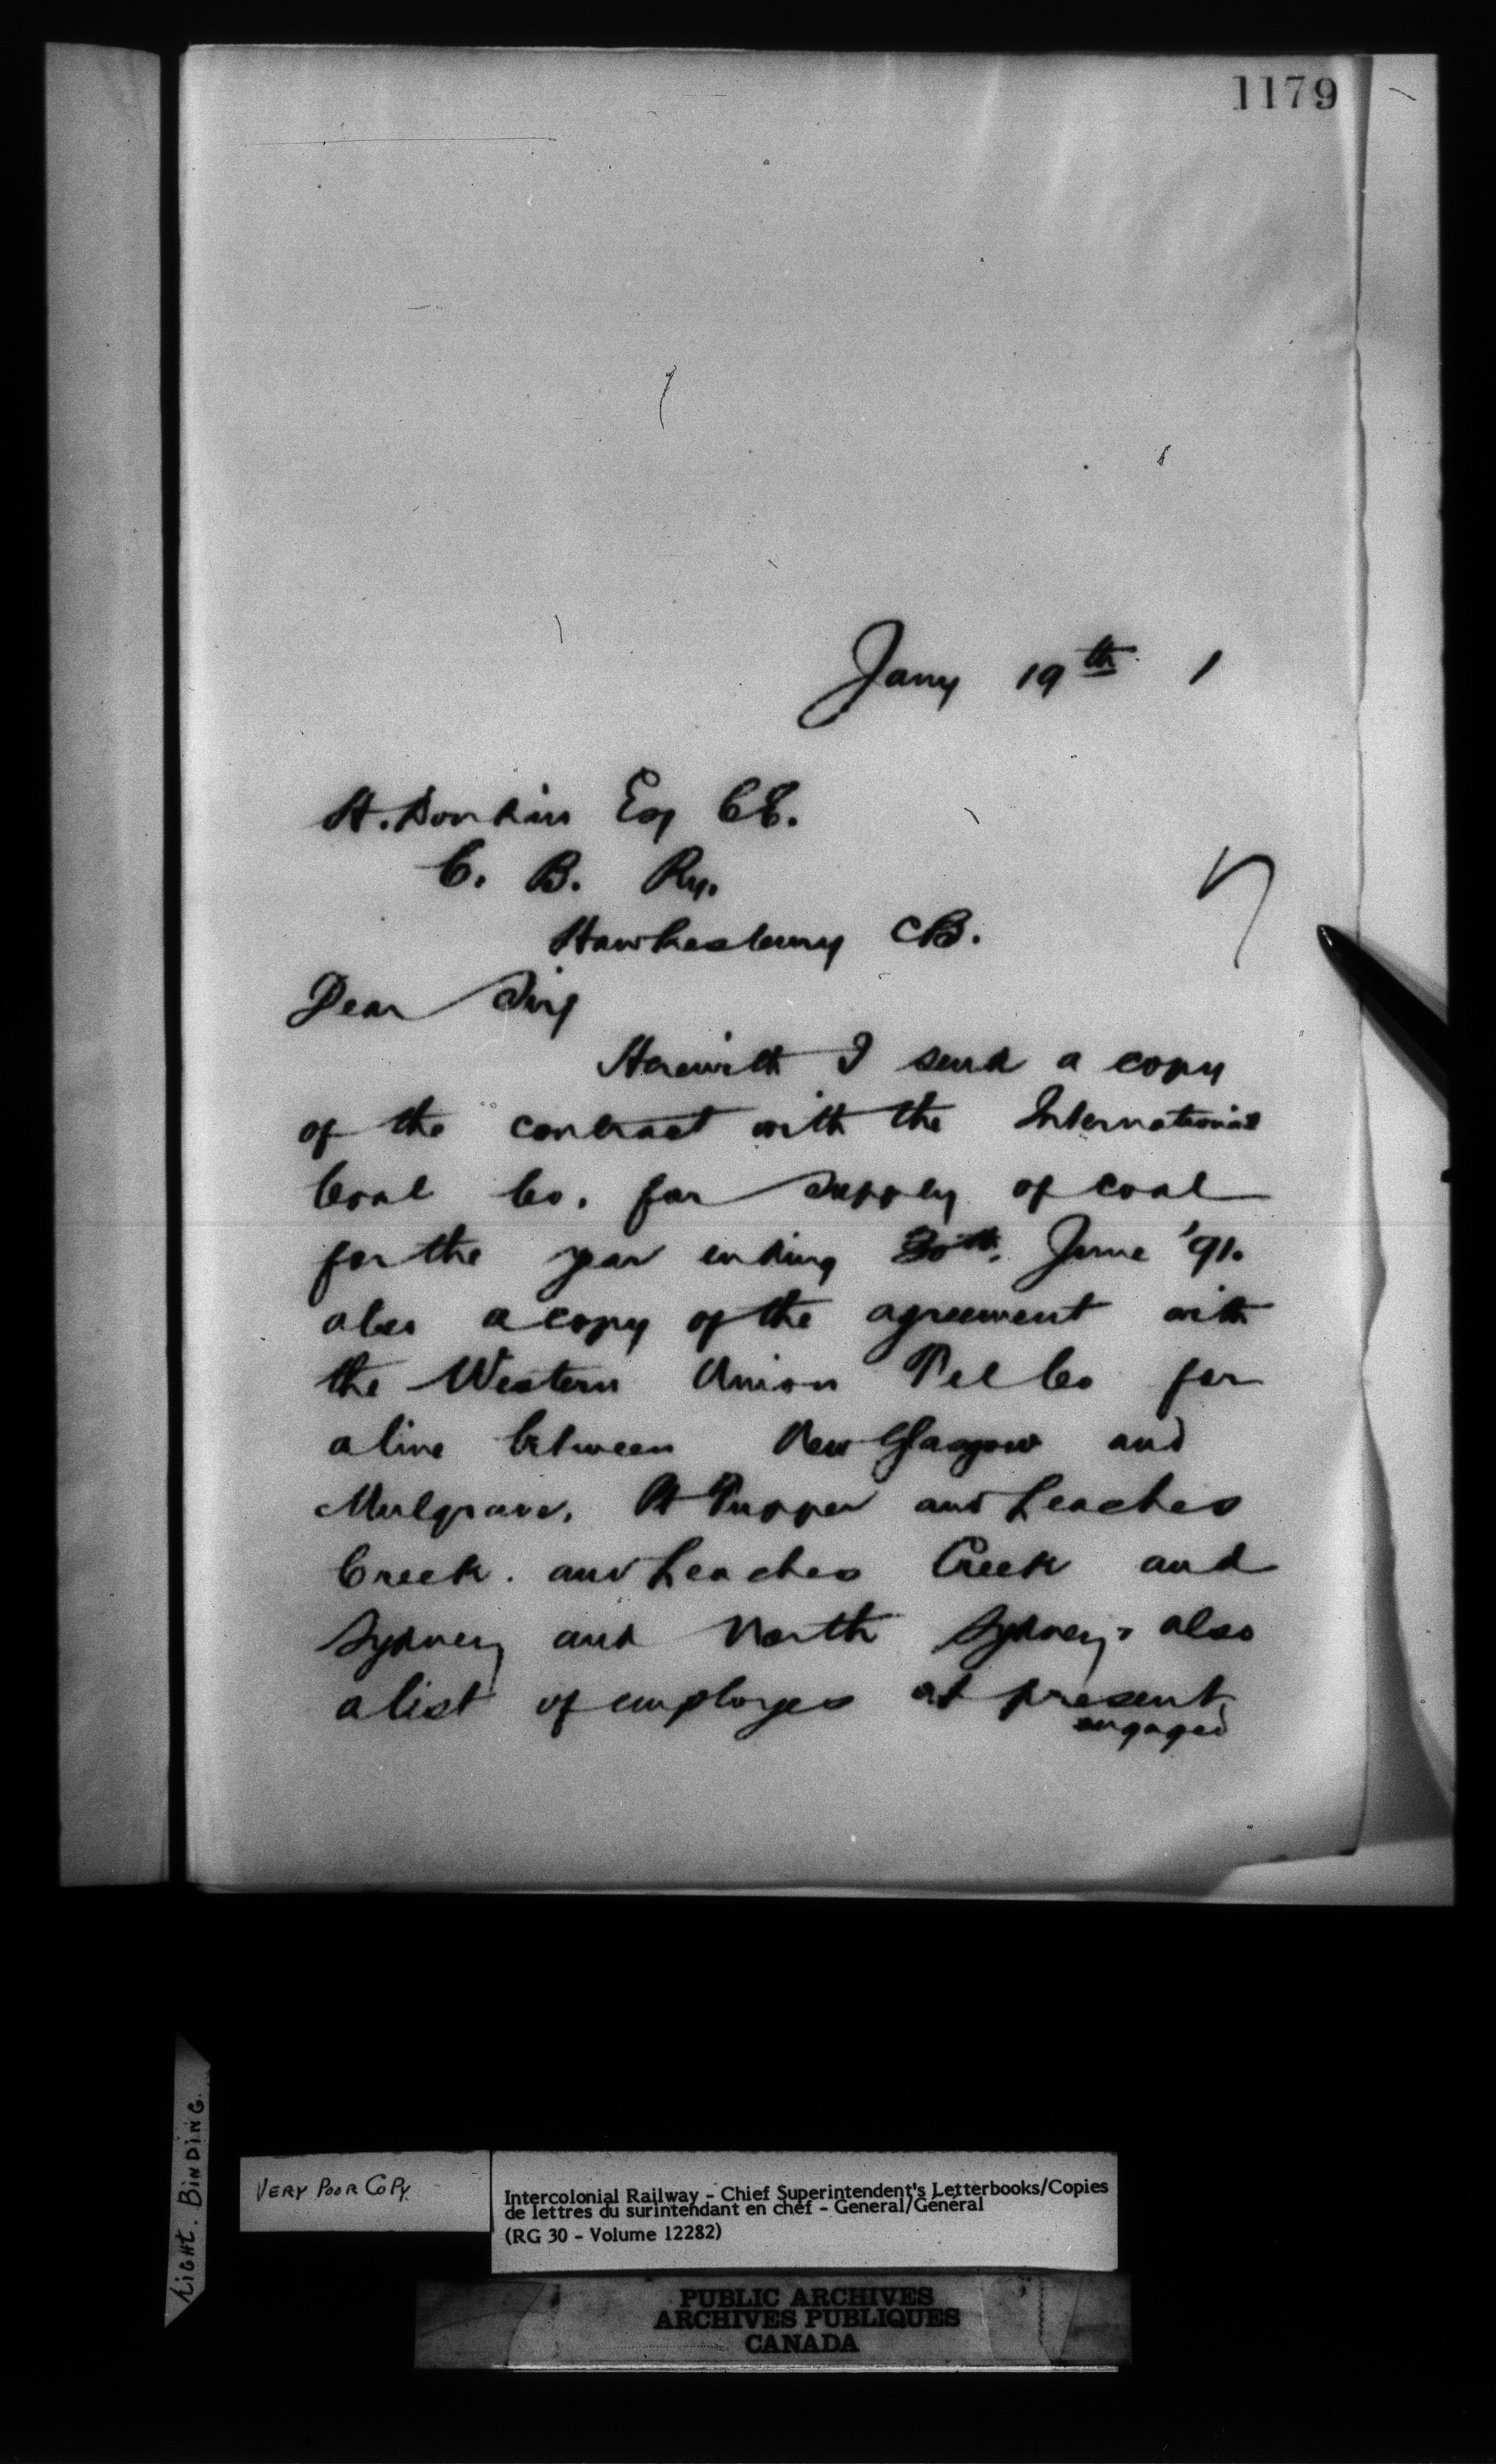 1179
Jany 19th 1
H. Donkin Esq CE.
C. B. Ry.
Hawkesbury CB.
Dear Sir,
Herewith I send a copy
of the contract with the International
Coal Co. for supply of coal
for the year ending 30th. June '91.
also a copy of the agreement with
the Western Union Tel Co for
a line between New Glasgow and
Mulgrave, Pt Tupper and Leaches
Creek. and Leaches Creek and
Sydney and North Sydney, also
a list of employes at present
engaged
TIGHT. BINDING.
VERY POOR COPY.
Intercolonial Railway - Chief Superintendent's Letterbooks/Copies
de lettres du surintendant en chef - General/Général
(RG 30 - Volume 12282)
PUBLIC ARCHIVES
ARCHIVES PUBLIQUES
CANADA